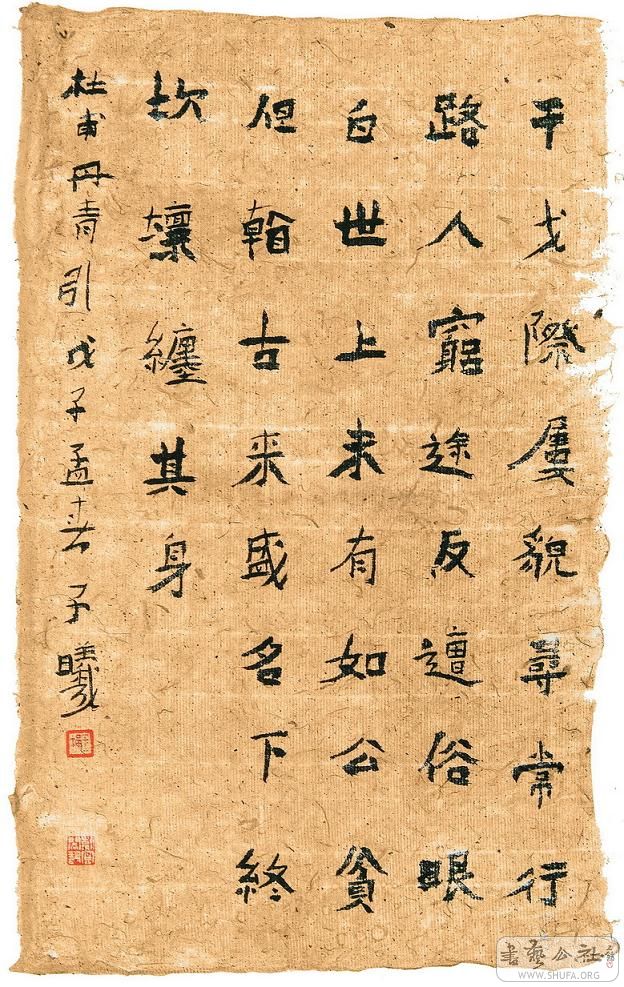 干戈際屢貌尋常行
路人窮途反遭俗眼
白世上未有如公貧
但看古来盛名下終
坎壈纏其身
杜甫丹青引戊子孟春子曦
書藝公社
WWW.SHUFA.ORG